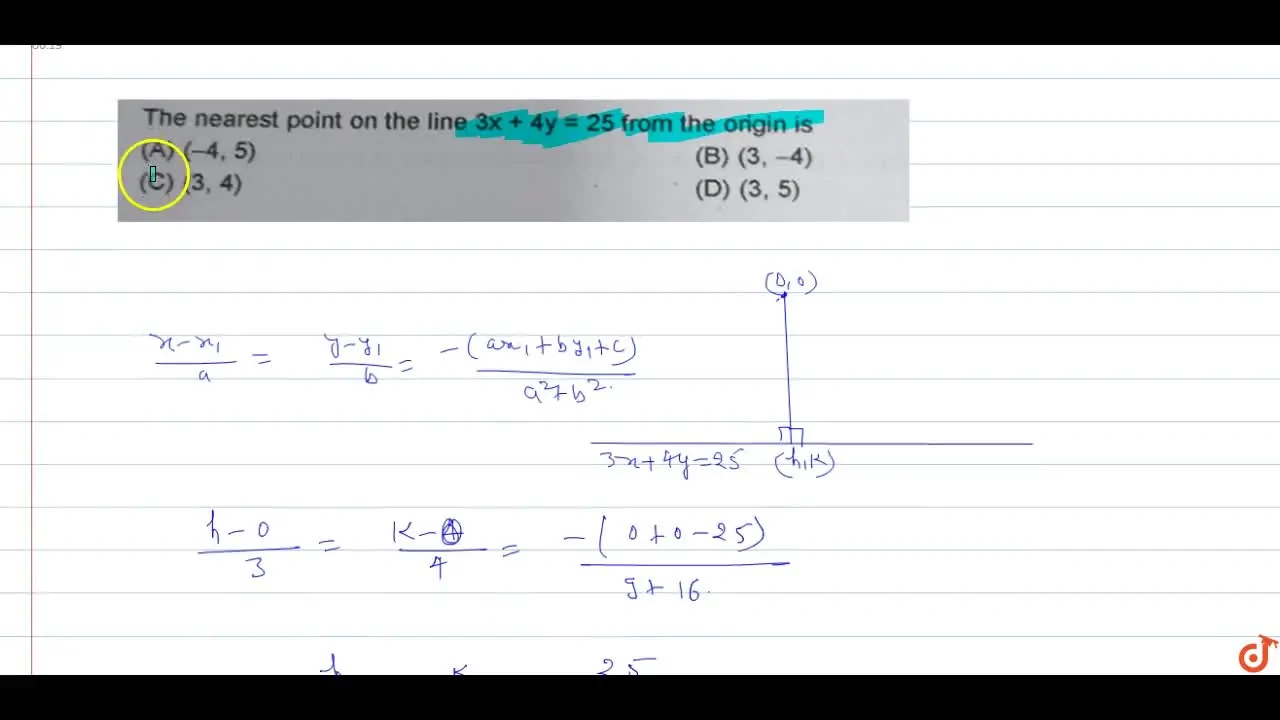 00:15
The nearest point on the line 3x + 4y = 25 from the origin is
(A) (–4, 5) (B) (3, –4)
(C) (3, 4) (D) (3, 5)
(0,0)
x-x₁/a = y-y₁/b = -(ax₁+by₁+c)/a²+b²
3x+4y=25 (h,k)
h-0/3 = k-0/4 = -(0+0-25)/9+16
h k 25